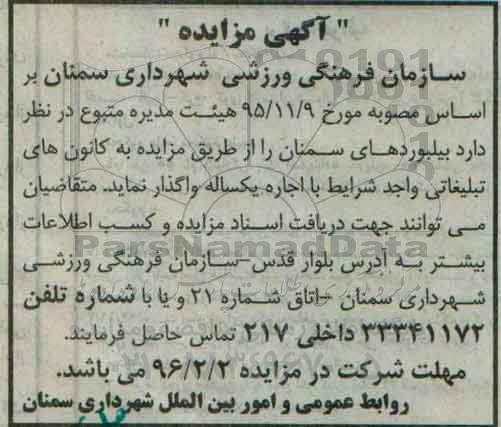 " آگهی مزایده "
سازمان فرهنگی ورزشی شهرداری سمنان بر
اساس مصوبه مورخ ۹۵/۱۱/۹ هیئت مدیره متبوع در نظر
دارد بیلبوردهای سمنان را از طریق مزایده به کانون های
تبلیغاتی واجد شرایط با اجاره یکساله واگذار نماید. متقاضیان
می توانند جهت دریافت اسناد مزایده و کسب اطلاعات
ParsNamadData
بیشتر به آدرس بلوار قدس-سازمان فرهنگی ورزشی
شهرداری سمنان -اتاق شماره ۲۱ و یا با شماره تلفن
۳۳۳۴۱۱۷۲ داخلی ۲۱۷ تماس حاصل فرمایند.
مهلت شرکت در مزایده ۹۶/۲/۲ می باشد.
روابط عمومی و امور بین الملل شهرداری سمنان